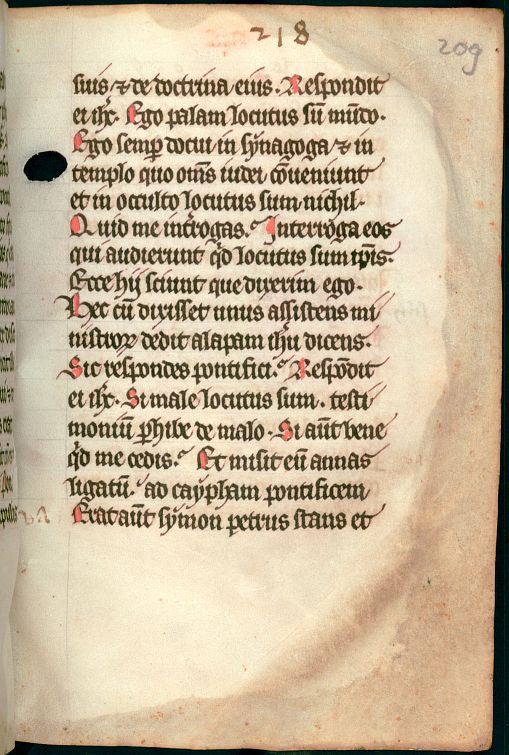 218
209
suis ⁊ de doctrina eius. Respondit
ei ihc̄. Ego palam locutus sū mūdo.
Ego semꝑ docui in synagoga ⁊ in
templo quo om̄s iudei cōueniunt
et in occulto locutus sum nichil.
Quid me int̄rogas. Interroga eos
qui audierunt qd̄ locutus sum ip̄is.
Ecce hij sciunt que dixerim ego.
Hec cū dixisset unus assistens mi
nistroꝝ dedit alapam ih̄u dicens.
Sic respondes pontifici. Respōdit
ei ihc̄. Si male locutus sum. testi
moniū ꝑhibe de malo. Si aūt bene
qd̄ me cedis. Et misit eū annas
ligatū. ad caypham pontificem
Erat aūt symon petrus stans et